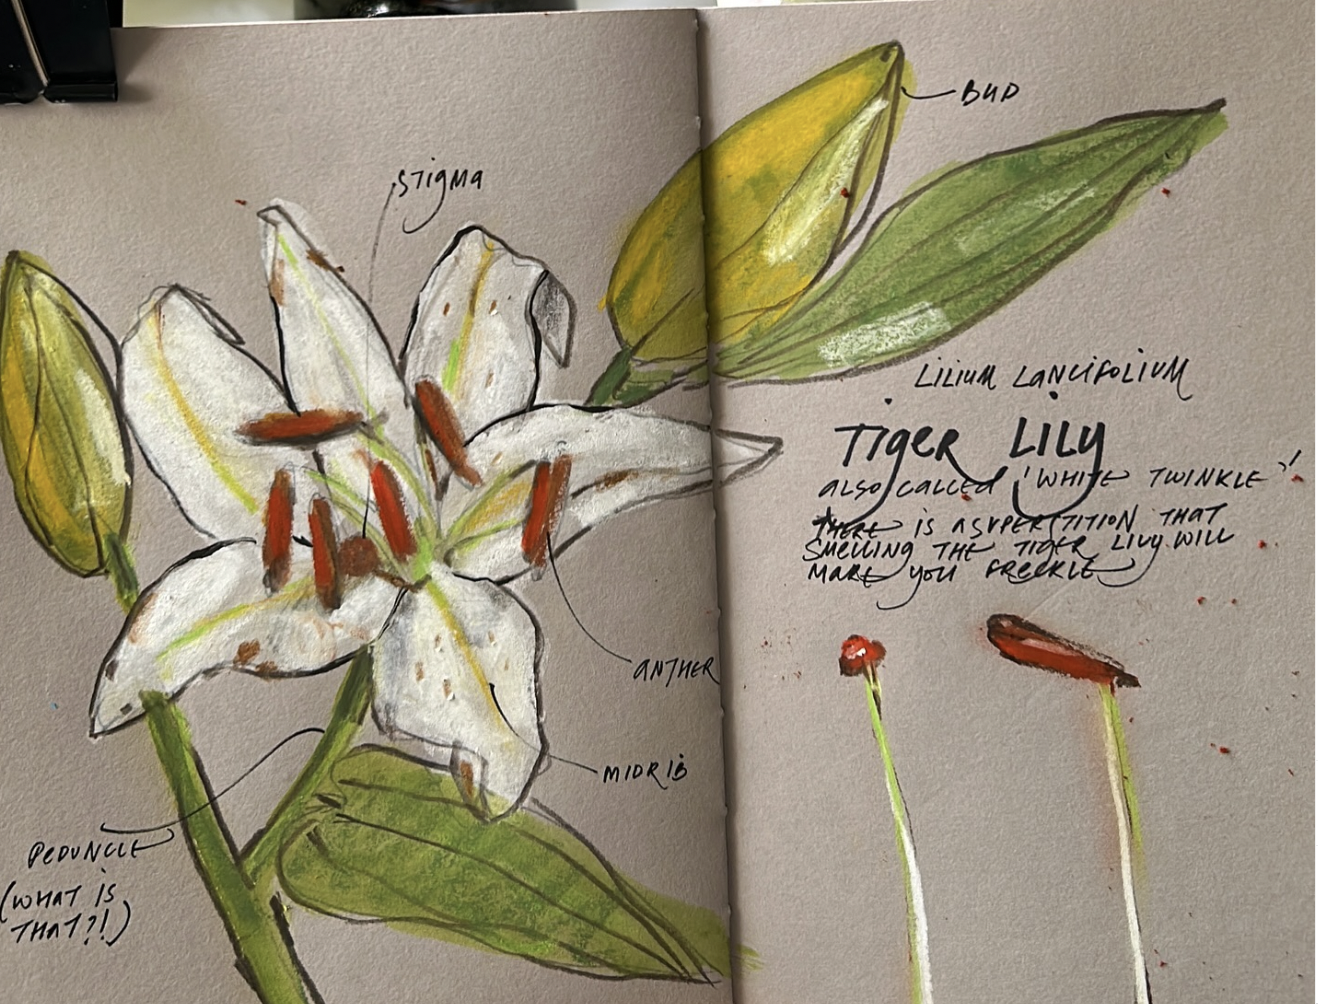 BUD
STIGMA
LILIUM LANCIFOLIUM
TIGER LILY
ALSO CALLED 'WHITE TWINKLE'
THERE IS A SUPERSTITION THAT
SMELLING THE TIGER LILY WILL
MAKE YOU FRECKLE
ANTHER
MIDRIB
PEDUNCLE
(WHAT IS
THAT?!)